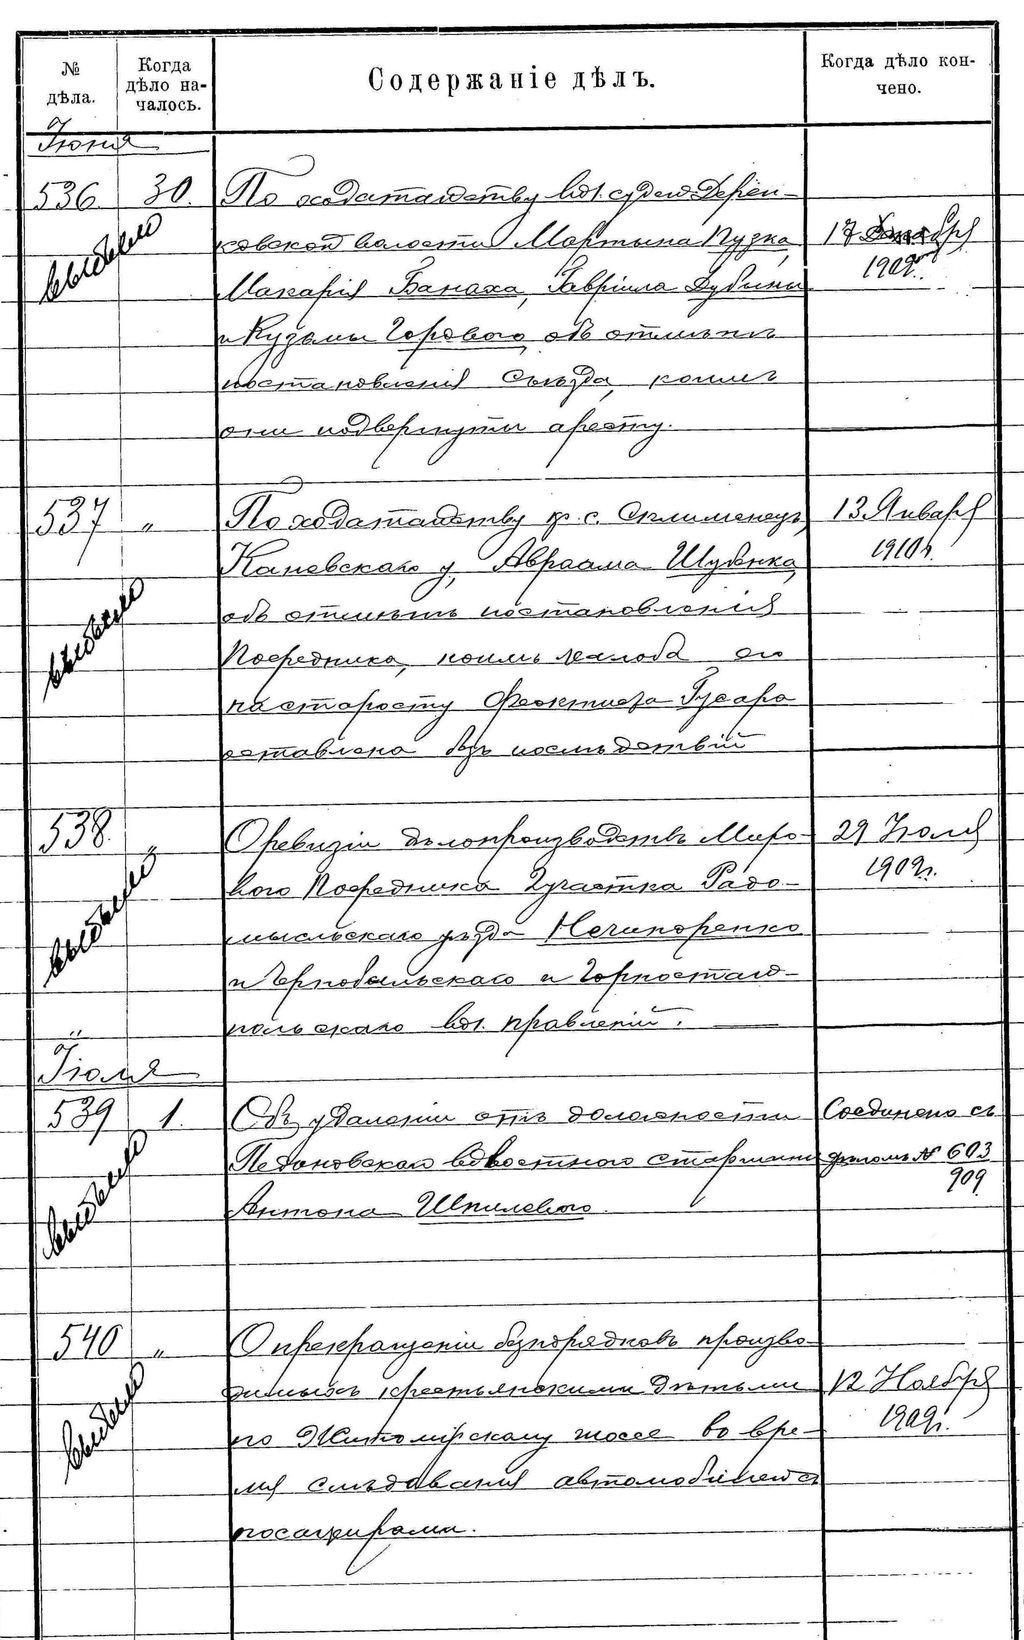 № дѣла.
Когда дѣло на-чалось.
Содержаніе дѣлъ.
Когда дѣло кон-чено.
Іюня
536. 30. По ходатайству вол. судей Дерен-
ковской волости Мартына Пузка,
Макарія Банаха, Гавріила Дубины
и Кузьмы Горового, объ отмѣнѣ
постановленія Съѣзда, коимъ
они подвергнуты аресту.
17
1909г.
выбыло
537 „ По ходатайству кр. с. Склименецъ,
Каневскаго у, Авраама Шубенка,
объ отмѣнѣ постановленія
Посредника, коимъ жалоба его
на старосту Феоктиста Гусара
оставлена безъ послѣдствій
13 Января
1910г.
выбыло
538. „ О ревизіи дѣлопроизводствъ Миро-
вого Посредника 2 участка Радо-
мысльскаго уѣзда Нечипоренко
и Чернобыльскаго и Горностай-
польскаго вол. правленій.
29 Іюля
1909г.
выбыло
Іюля
539 1. Объ удаленіи отъ должности
волостного старшины
Антона Шпилевого.
Соединено съ
дѣломъ № 603
909
выбыло
540 „ О прекращеніи безпорядковъ произво-
димыхъ крестьянскими дѣтьми
по Житомірскому шоссе во вре-
мя слѣдованія автомобилей съ
пасажирами.
12 Ноября
1909г.
выбыло